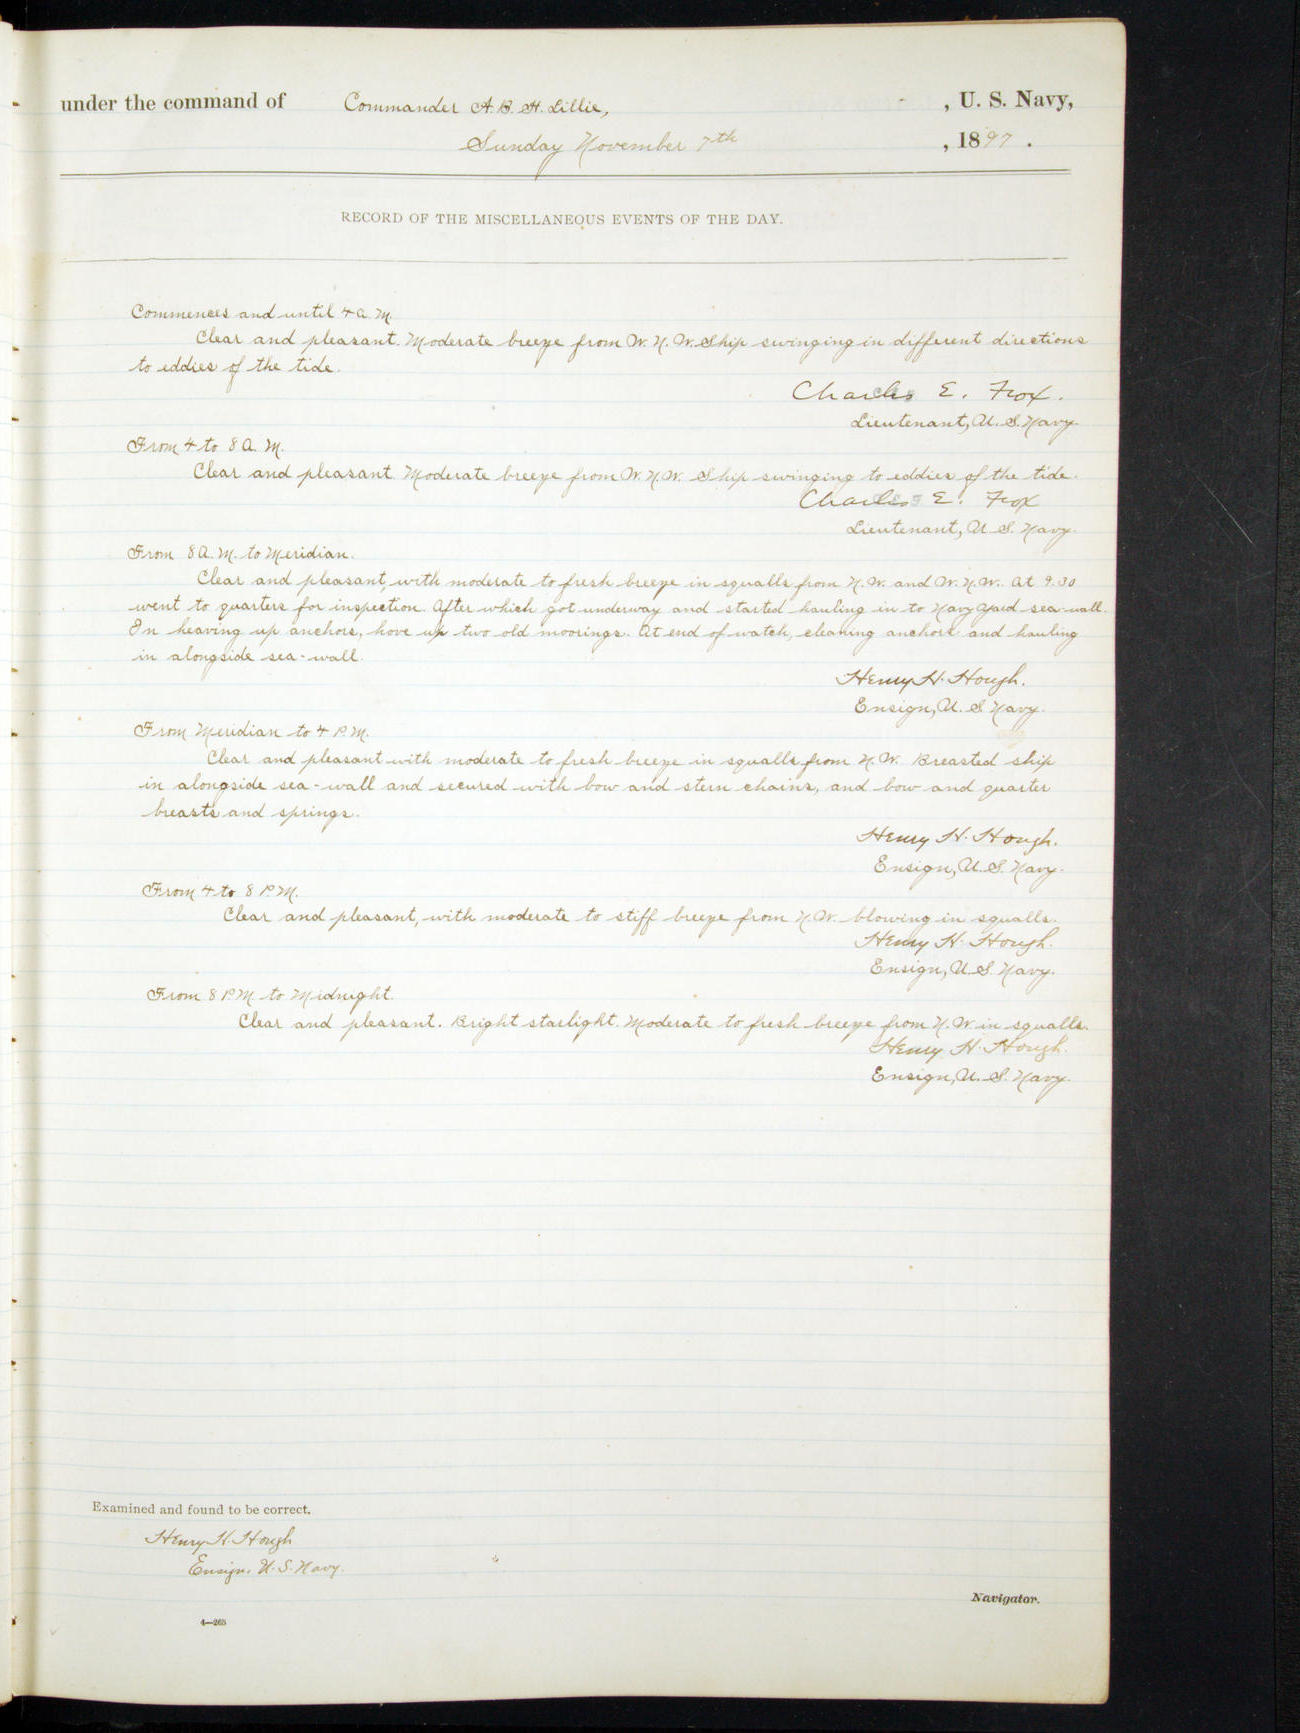 under the command of Commander A. B. H. Lillie, , U. S. Navy,
Sunday November 7th , 1897 .
RECORD OF THE MISCELLANEOUS EVENTS OF THE DAY.
Commences and until 4 a. M.
Clear and pleasant. Moderate breeze from W. N. W. Ship swinging in different directions
to eddies of the tide.
Charles E. Fox.
Lieutenant, U. S. Navy.
From 4 to 8 A. M.
Clear and pleasant. Moderate breeze from W. N. W. Ship swinging to eddies of the tide.
Charles E. Fox
Lieutenant, U. S. Navy.
From 8 A. M. to Meridian.
Clear and pleasant, with moderate to fresh breeze in squalls from N. W. and W. N. W. At 9.30
went to quarters for inspection. After which got underway and started hauling in to Navy Yard sea-wall.
In heaving up anchors, hove up two old moorings. At end of watch, cleaning anchors and hauling
in alongside sea-wall.
Henry H. Hough.
Ensign, U. S. Navy.
From Meridian to 4 P. M.
Clear and pleasant with moderate to fresh breeze in squalls from N. W. Breasted ship
in alongside sea-wall and secured with bow and stern chains, and bow and quarter
breasts and springs.
Henry H. Hough.
Ensign, U. S. Navy.
From 4 to 8 P. M.
Clear and pleasant, with moderate to stiff breeze from N. W. blowing in squalls.
Henry H. Hough.
Ensign, U. S. Navy.
From 8 P. M. to Midnight.
Clear and pleasant. Bright starlight. Moderate to fresh breeze from N. W. in squalls.
Henry H. Hough.
Ensign, U. S. Navy.
Examined and found to be correct.
Henry H. Hough
Ensign, U. S. Navy.
Navigator.
4—265